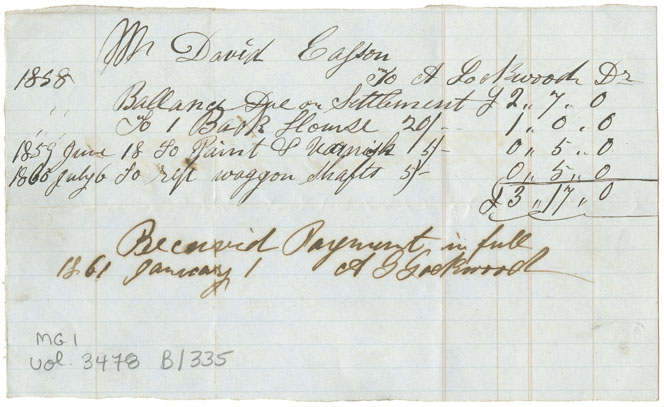 Mr David Easson
1858 To A Lockwood Dr
" " Ballance Due on Settlement £ 2 " 7 " 0
" " To 1 Back 20/- 1 " 0 " 0
1859 June 18 To Paint & Varnish 5/- 0 " 5 " 0
1860 July 6 To waggon shafts 5/- 0 " 5 " 0
£ 3 " 17 " 0
Received Payment in full
1861 January 1 A Lockwood
MG1
vol. 3478 B/335